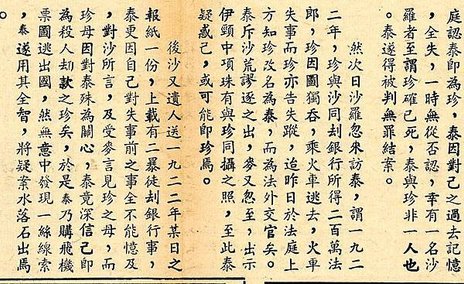 庭認泰即為珍,泰因對己之過去記憶
,全失,一時無從否認,幸有一名沙
羅者至謂珍確已死,泰與珍非一人也
。泰遂得被判無罪結案。
然次日沙羅忽來訪泰,謂一九二
二年,珍與沙同刦銀行所得二百萬法
郎,珍因圖獨吞,乘火車逃去,火車
失事而珍亦告失蹤,迨昨日於法庭上
方知珍改名為泰,而為法外交官矣。
泰斥沙荒謬逐之出,麥又忽至,出示
伊頸中項珠有與珍同攝之照,至此泰
疑惑己,或可能即珍焉。
後沙又遣人送一九二二年某日之
報紙一份,上載有二暴徒刦銀行事,
泰更因自己對失事前之事全不能憶及
,對沙所言,及受麥言見珍之母,而
珍母因對泰殊為關心,泰竟深信己即
為殺人刦款之珍矣,於是泰乃購飛機
票圖逃出國,然無意中發現一絲線索
,泰遂用其全智,將疑案水落石出焉